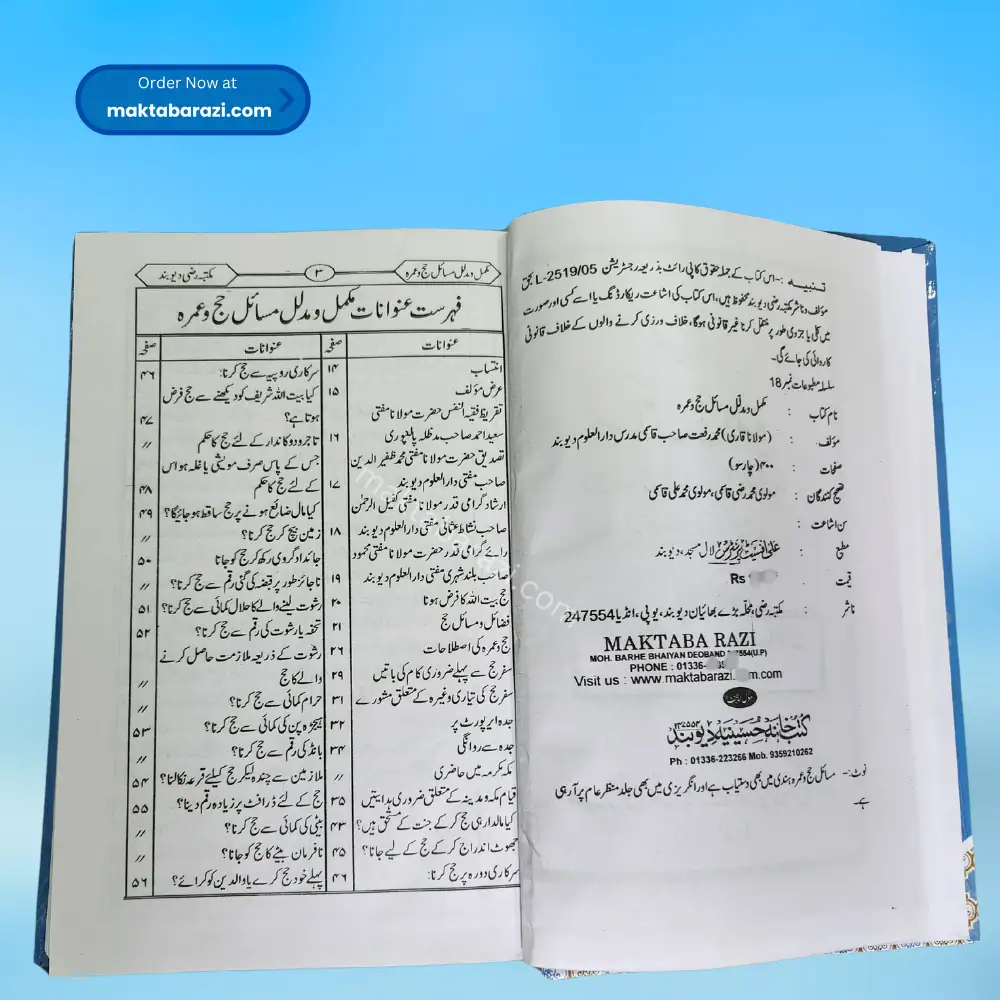 Order Now at
maktabarazi.com
تنبیہ :۔ اس کتاب کے جملہ حقوق کاپی رائٹ بذریعہ رجسٹریشن L-2519/05 بحق
مؤلف و ناشر مکتبہ رضی دیوبند محفوظ ہیں، اس کتاب کی اشاعت ریکارڈنگ یا اسے کسی اور صورت
میں کلی یا جزوی طور پر منتقل کرنا غیر قانونی ہوگا، خلاف ورزی کرنے والوں کے خلاف قانونی
کاروائی کی جائے گی۔
سلسلہ مطبوعات نمبر 18
نام کتاب : مکمل و مدلل مسائل حج و عمرہ
مؤلف : (مولانا قاری) محمد رفعت صاحب قاسمی مدرس دار العلوم دیوبند
صفحات : ۴۰۰ (چارسو)
تصحیح کنندگان : مولوی محمد رضی قاسمی، مولوی محمد علی قاسمی
سن اشاعت :
مطبع : لال مسجد، دیوبند
قیمت : Rs
ناشر : مکتبہ رضی، محلہ بڑے بھائیان دیوبند، یوپی، انڈیا 247554
MAKTABA RAZI
MOH. BARHE BHAIYAN DEOBAND 247554(U.P)
PHONE : 01336-
Visit us : www.maktabarazi.com
کتب خانہ حسینیہ دیوبند
۲۴۷۵۵۴
Ph : 01336-223266 Mob. 9359210262
نوٹ:۔ مسائل حج و عمرہ ہندی میں بھی دستیاب ہے اور انگریزی میں بھی جلد منظر عام پر آرہی
ہے۔
مکمل و مدلل مسائل حج و عمرہ ۳ مکتبہ رضی دیوبند
فہرست عنوانات مکمل و مدلل مسائل حج و عمرہ
عنوانات صفحہ عنوانات صفحہ
انتساب ۱۴
عرض مؤلف ۱۵
تقریظ فقیہ النفس حضرت مولانا مفتی
سعید احمد صاحب مدظلہ پالنپوری ۱۶
تصدیق حضرت مولانا مفتی محمد ظفیر الدین
صاحب مفتی دار العلوم دیوبند ۱۷
ارشاد گرامی قدر مولانا مفتی کفیل الرحمٰن
صاحب نشاط عثمانی مفتی دار العلوم دیوبند ۱۸
رائے گرامی قدر حضرت مولانا مفتی محمود
صاحب بلند شہری مفتی دار العلوم دیوبند ۱۹
حج بیت اللہ کا فرض ہونا ۲۰
فضائل و مسائل حج ۲۱
حج و عمرہ کی اصطلاحات ۲۶
سفر حج سے پہلے ضروری کام کی باتیں ۲۹
سفر حج کی تیاری وغیرہ کے متعلق مشورے ۳۱
جدہ ایرپورٹ پر ۳۲
جدہ سے روانگی ۳۴
مکہ مکرمہ میں حاضری ۱۱
قیام مکہ و مدینہ کے متعلق ضروری ہدایتیں ۳۵
کیا مالدار ہی حج کر کے جنت کے مستحق ہیں؟ ۴۳
جھوٹ اندراج کر کے حج کے لیے جانا؟ ۴۵
سرکاری دورہ پر حج کرنا: ۴۶
سرکاری روپیہ سے حج کرنا: ۴۶
کیا بیت اللہ شریف کو دیکھنے سے حج فرض
ہوتا ہے؟ ۴۷
تاجر و دوکاندار کے لئے حج کا حکم ۱۱
جس کے پاس صرف مویشی یا غلہ ہو اس
کے لئے حج کا حکم ۴۸
کیا مال ضائع ہونے پر حج ساقط ہو جائیگا؟ ۴۹
زمین بیچ کر حج کرنا؟ ۱۱
جائداد گروی رکھ کر حج کو جانا ۵۰
ناجائز طور پر قبضہ کی گئی رقم سے حج کرنا؟ ۱۱
رشوت لینے والے کا حلال کمائی سے حج کرنا؟ ۵۱
تحفہ یا رشوت کی رقم سے حج کرنا؟ ۵۲
رشوت کے ذریعہ ملازمت حاصل کرنے
والے کا حج ۱۱
حرام کمائی سے حج کرنا؟ ۱۱
ہیجڑہ پن کی کمائی سے حج کرنا؟ ۵۳
بانڈ کی رقم سے حج کرنا؟ ۱۱
ملازمین سے چندہ لیکر حج کیلئے قرعہ نکالنا؟ ۵۴
حج کے لئے ڈرافٹ پر زیادہ رقم دینا؟ ۵۵
بیٹی کی کمائی سے حج کرنا؟ ۱۱
نافرمان بیٹے کا حج کو جانا؟ ۱۱
پہلے خود حج کرے یا والدین کو کرائے؟ ۵۶